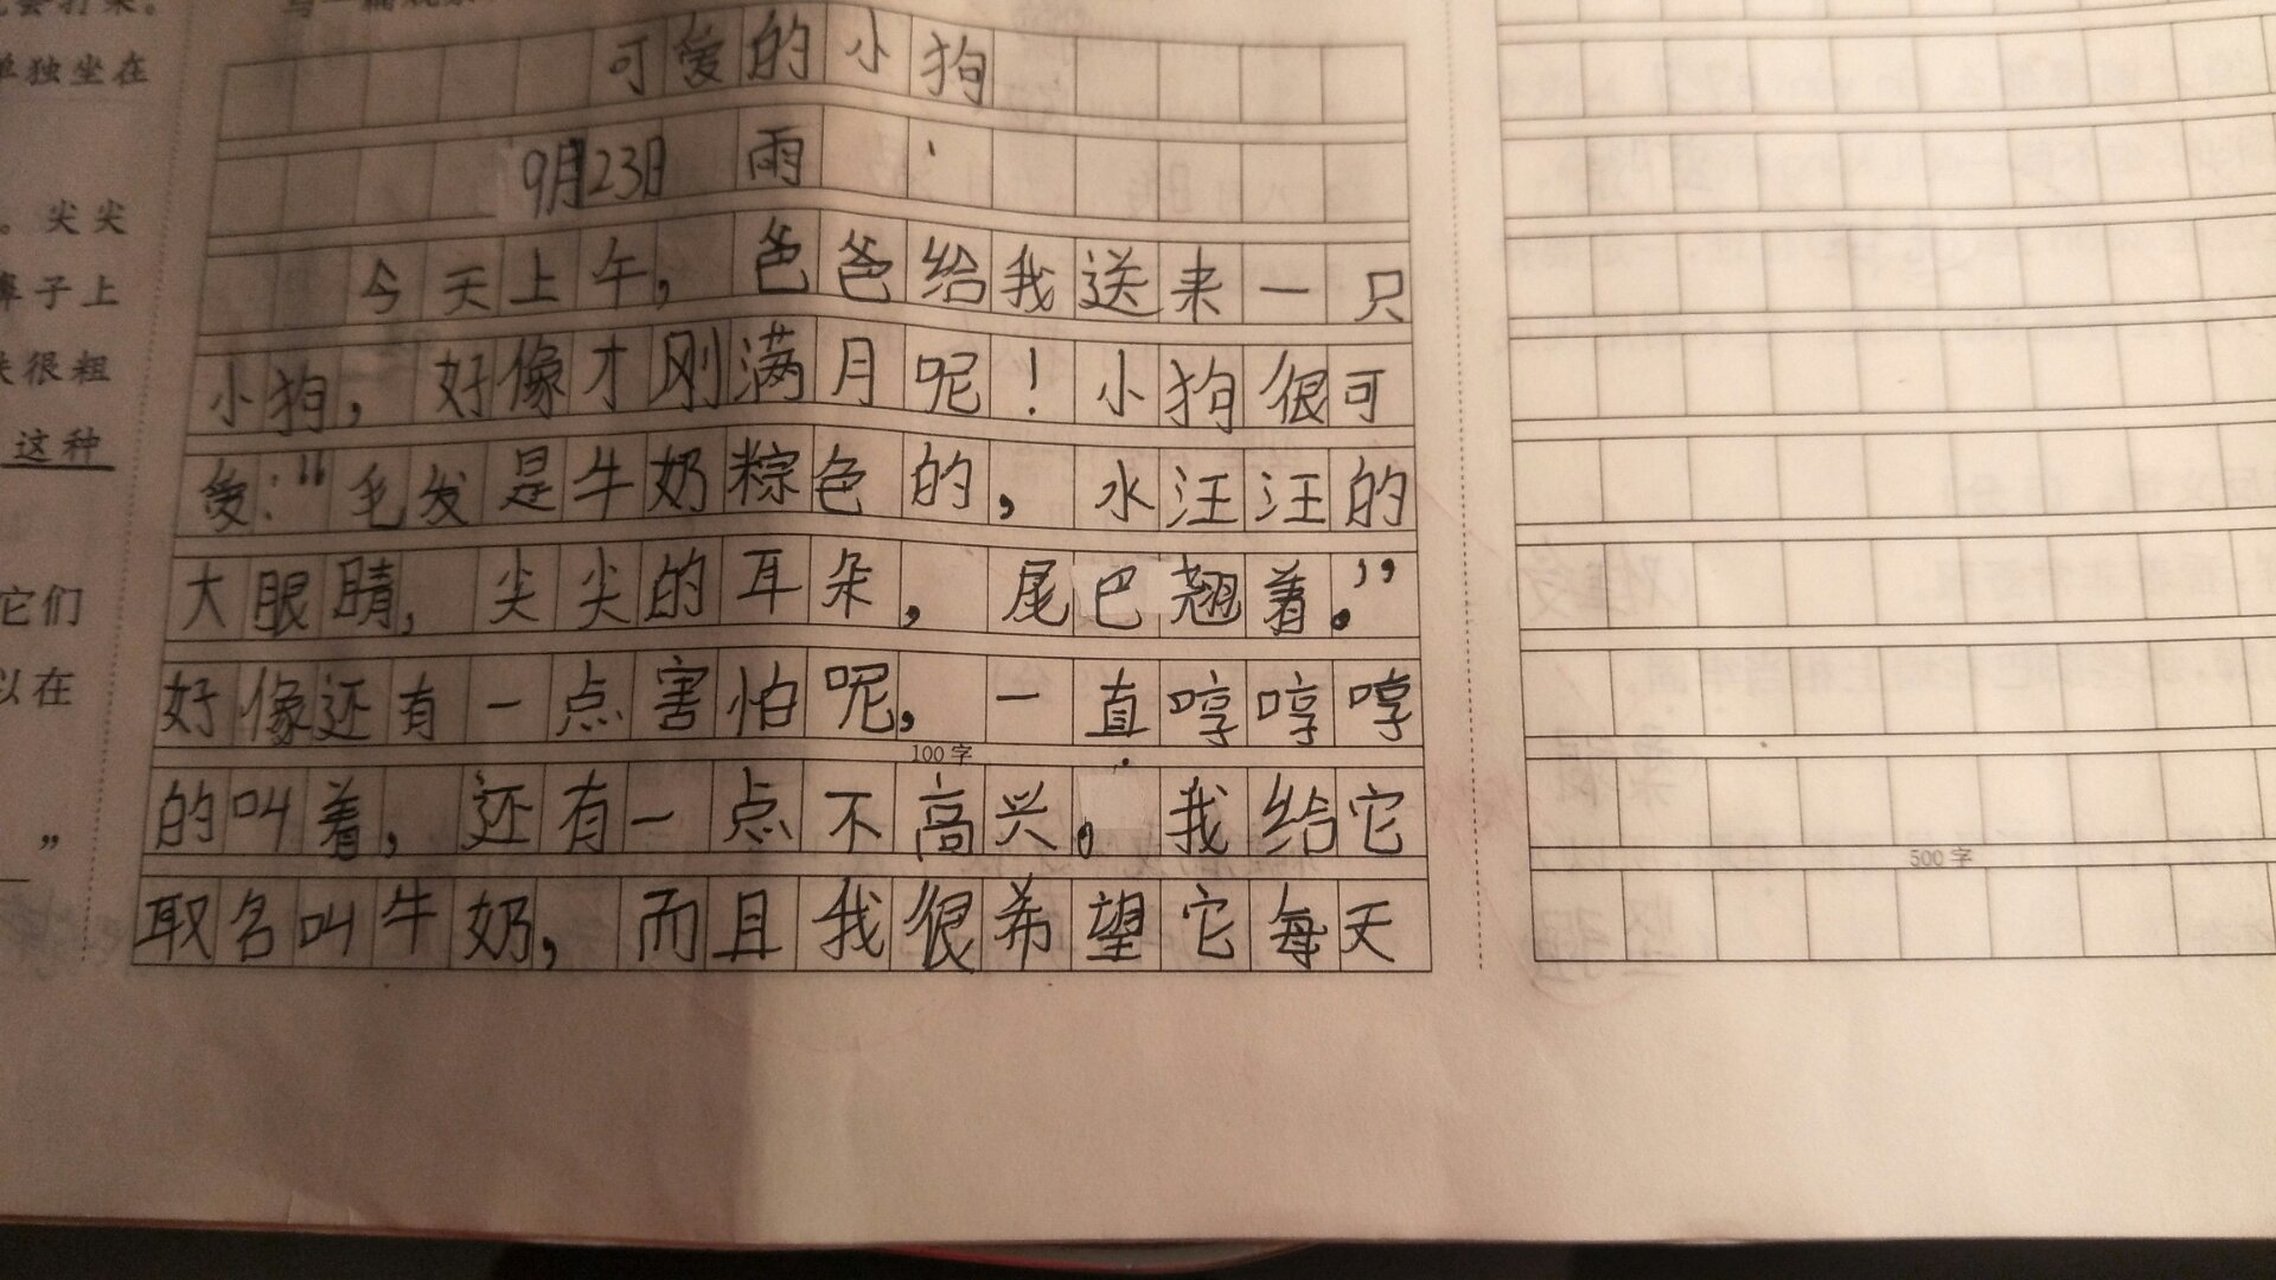 单独坐在
。尖尖
鼻子上
很粗
这种
它们
以在
”
可爱的小狗
9月23日 雨
今天上午，爸爸给我送来一只
小狗，好像才刚满月呢！小狗很可
爱：“毛发是牛奶粽色的，水汪汪的
大眼睛，尖尖的耳朵，尾巴翘着。”
好像还有一点害怕呢，一直哼哼哼
100字
的叫着，还有一点不高兴。我给它
取名叫牛奶，而且我很希望它每天
500字